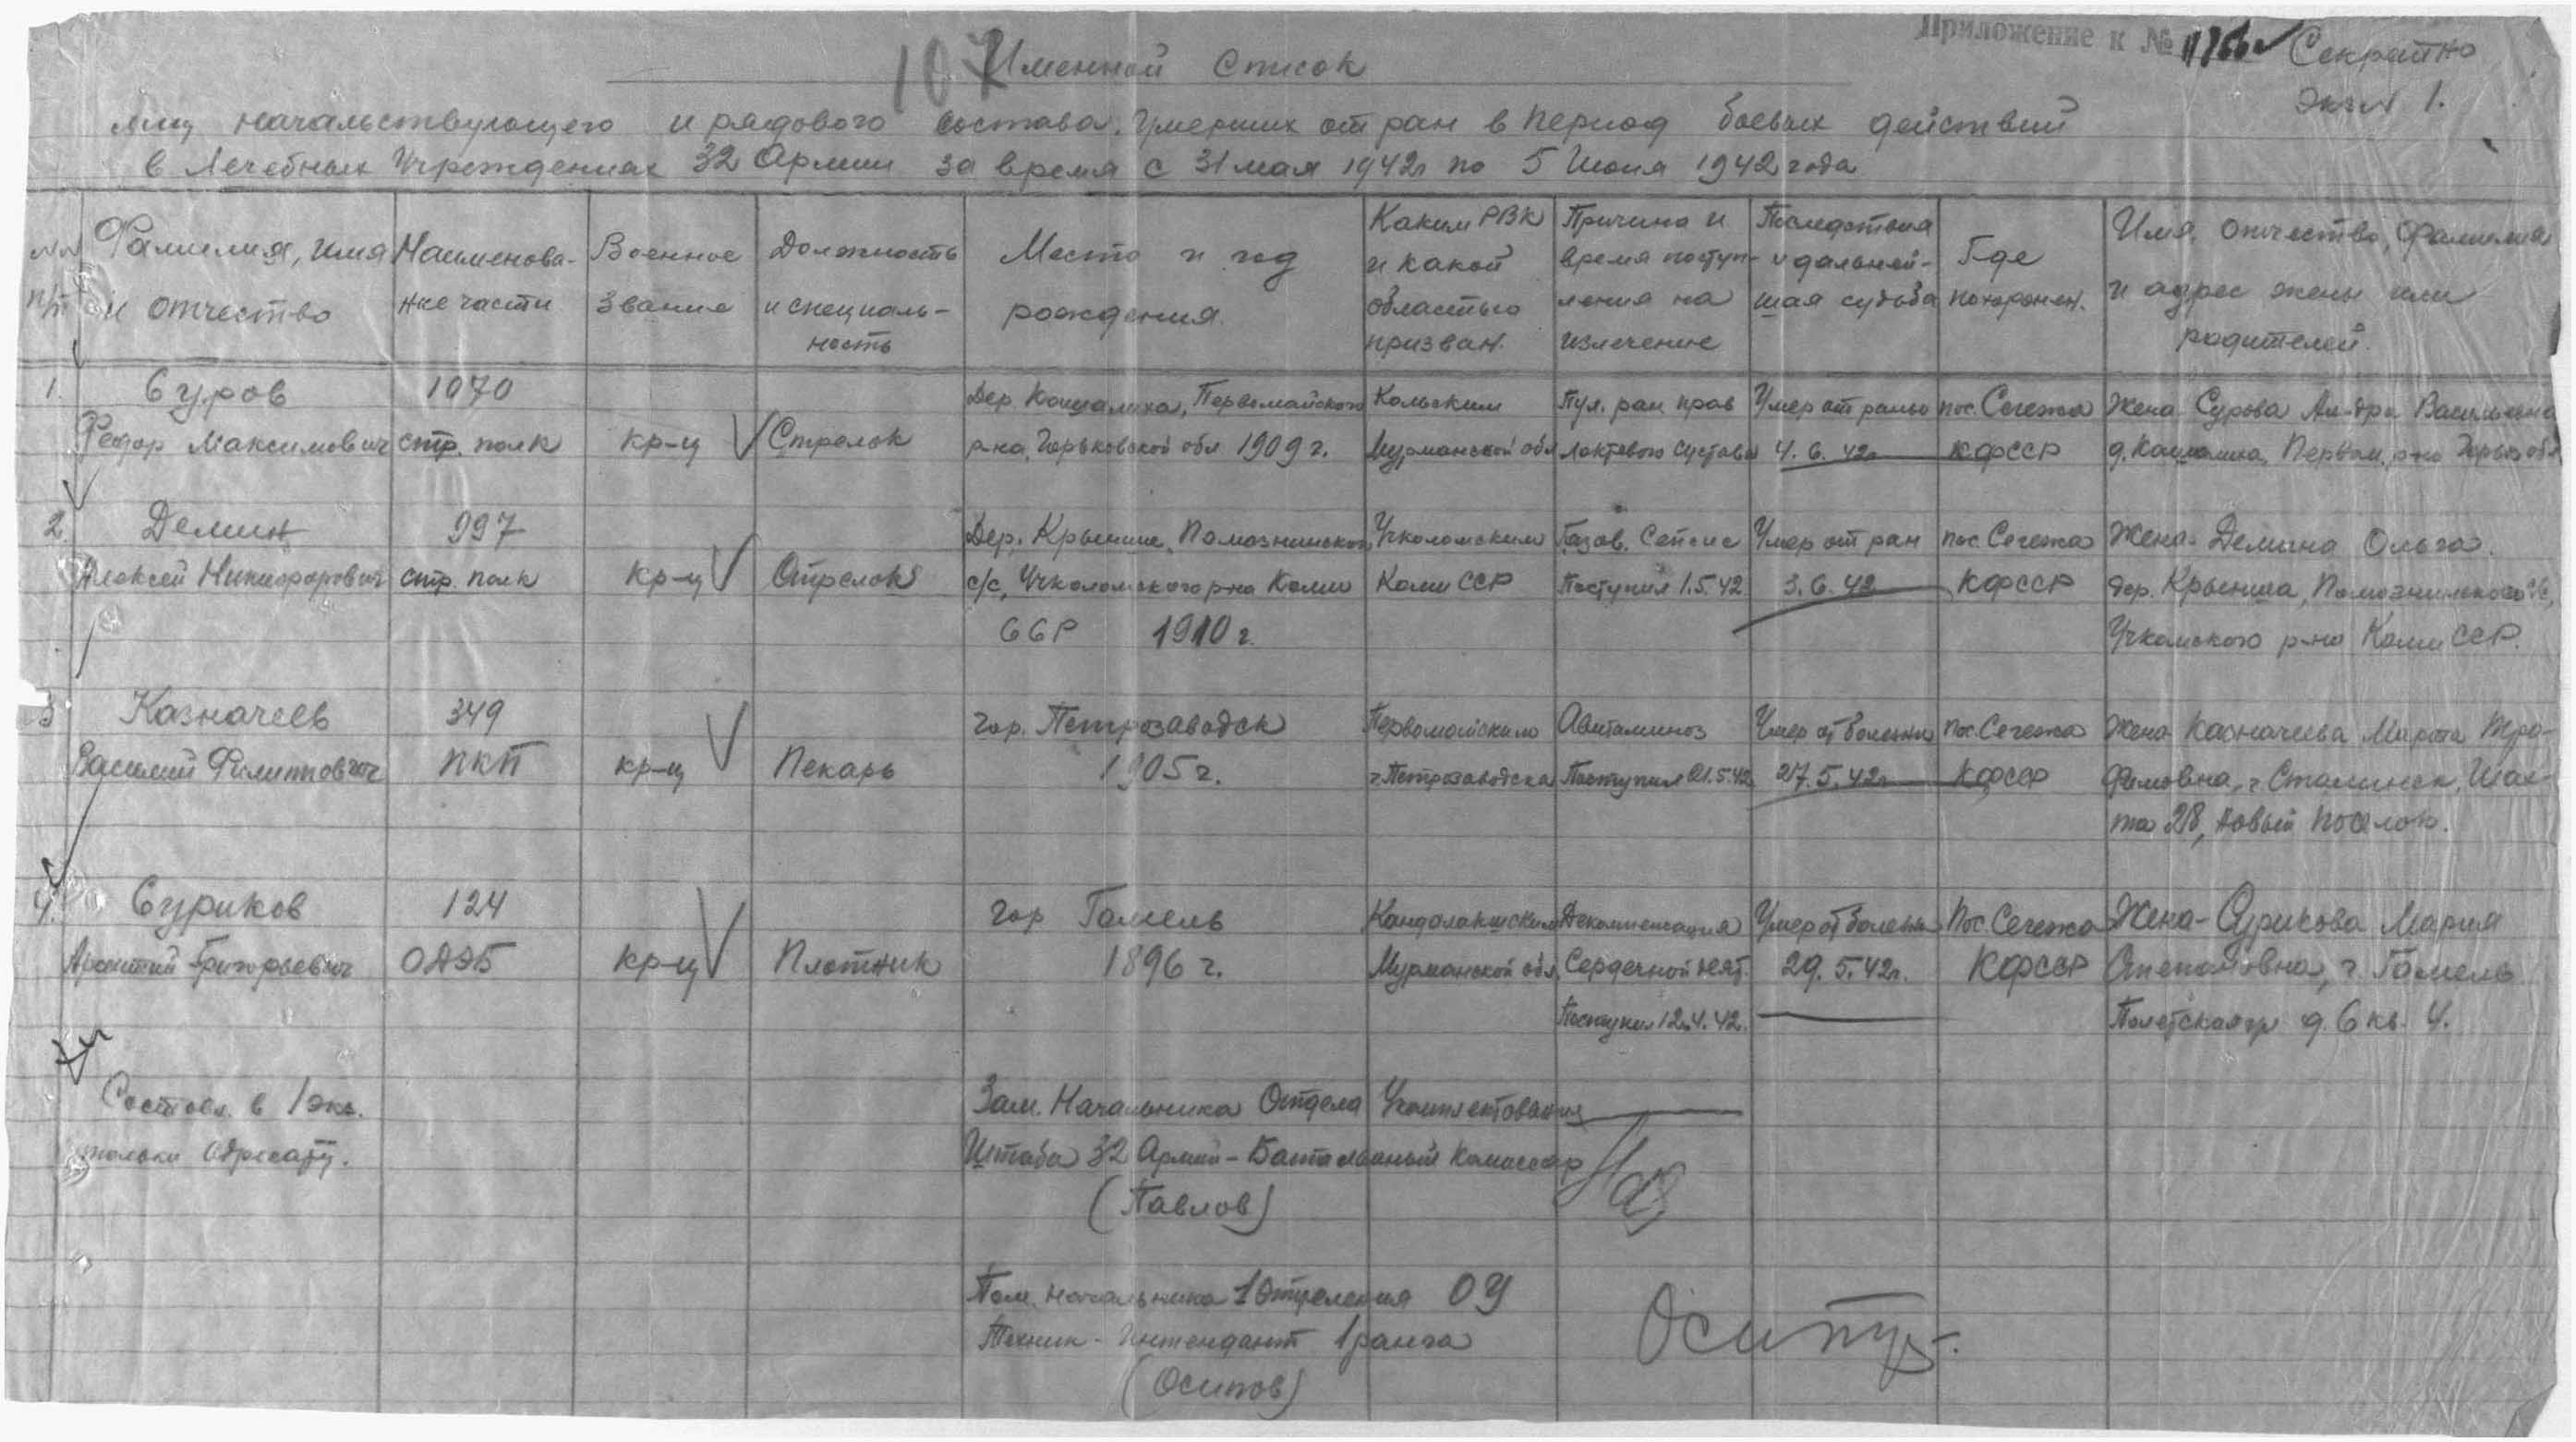 Приложение к №
Секретно
Экз № 1.
107
Именной Список
лиц начальствующего и рядового состава, умерших от ран в период боевых действий
в Лечебных Учреждениях 32 Армии за время с 31 мая 1942г по 5 Июня 1942 года
№№ п/п
Фамилия, имя
и отчество
Наименова-
ние части
Военное
звание
Должность
и специаль-
ность
Место и год
рождения.
Каким РВК
и какой
областью
призван.
Причина и
время поступ-
ления на
излечение
Последствия
и дальней-
шая судьба
Где
похоронен.
Имя, отчество, Фамилия
и адрес жены или
родителей.
1.
Суров
Федор Максимович
1070
стр. полк
кр-ц
Стрелок
Дер. Первомайского
р-на, Горьковской обл 1909 г.
Кольским
Мурманской обл
Пул. ран прав
локтевого сустава
Умер от раны
4. 6. 42г
пос. Сегежа
КФССР
Жена Сурова Ал-дра Васильевна
Первом. р-на Горьк обл
2.
Демин
Алексей Никифорович
997
стр. полк
кр-ц
Стрелок
Дер.
с/с, р-на Коми
ССР 1910 г.
Коми ССР
Газов. Сепсис
Поступил 1.5.42
Умер от ран
3. 6. 42
пос. Сегежа
КФССР
Жена- Демина Ольга.
дер.
р-на Коми ССР.
3
Казначеев
Василий Филиппович
349
ПКП
кр-ц
Пекарь
гор. Петрозаводск
1905 г.
Первомайским
г. Петрозаводска
Авитаминоз
Поступил 21.5.42
Умер от болезни
27. 5. 42г
пос. Сегежа
КФССР
Жена Казначеева Марфа Тро-
фимовна, г. Сталинск, Шах-
та 28, новый поселок.
4.
Суриков
Арсентий Григорьевич
124
ОДЭБ
кр-ц
Плотник
гор Гомель
1896 г.
Кандалакшским
Мурманской обл.
Декомпенсация
Сердечной деят.
Поступил 12.4.42.
Умер от болезни
29. 5. 42г.
Пос. Сегежа
КФССР
Жена- Сурикова Мария
Степановна, г. Гомель
д. 6 кв. 4.
Составл. в 1 экз.
только адресату.
Зам. Начальника Отдела Укомплектования
Штаба 32 Армии - Батальонный Комиссар
(Павлов)
Пом. начальника 1 Отделения ОУ
Техник - Интендант 1 ранга
(Осипов)